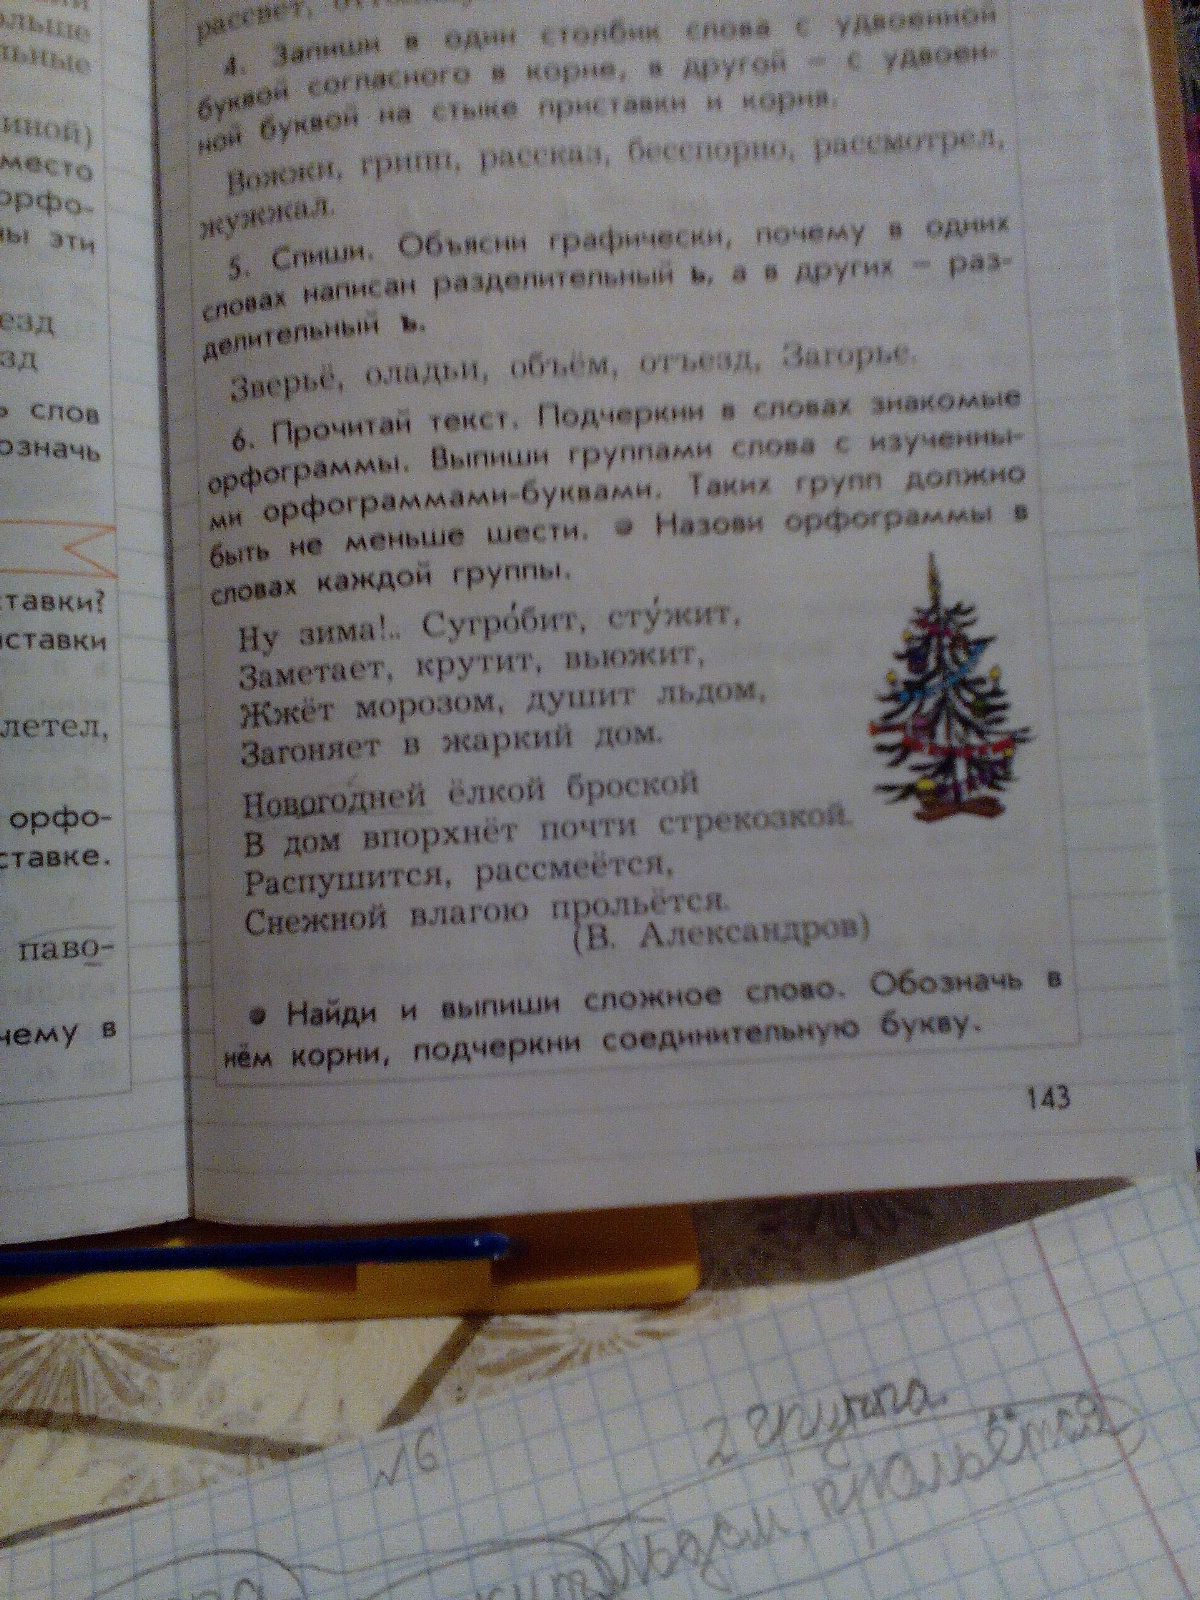 ольше
льные
иной)
место
орфо-
ны эти
езд
зд
ь слов
означь
ставки?
иставки
летел,
орфо-
ставке.
паво-
чему в
рассвет,
4. Запиши в один столбик слова с удвоенной
буквой согласного в корне, в другой – с удвоен-
ной буквой на стыке приставки и корня.
Вожжи, грипп, рассказ, бесспорно, рассмотрел,
жужжал.
5. Спиши. Объясни графически, почему в одних
словах написан разделительный ь, а в других – раз-
делительный ъ.
Зверьё, оладьи, объём, отъезд, Загорье.
6. Прочитай текст. Подчеркни в словах знакомые
орфограммы. Выпиши группами слова с изученны-
ми орфограммами-буквами. Таких групп должно
быть не меньше шести. ● Назови орфограммы в
словах каждой группы.
Ну зима!.. Сугро́бит, сту́жит,
Заметает, крутит, вьюжит,
Жжёт морозом, душит льдом,
Загоняет в жаркий дом.
Новогодней ёлкой броской
В дом впорхнёт почти стрекозкой.
Распушится, рассмеётся,
Снежной влагою прольётся.
(В. Александров)
● Найди и выпиши сложное слово. Обозначь в
нём корни, подчеркни соединительную букву.
143
№6
2 группа
льдом, прольётся